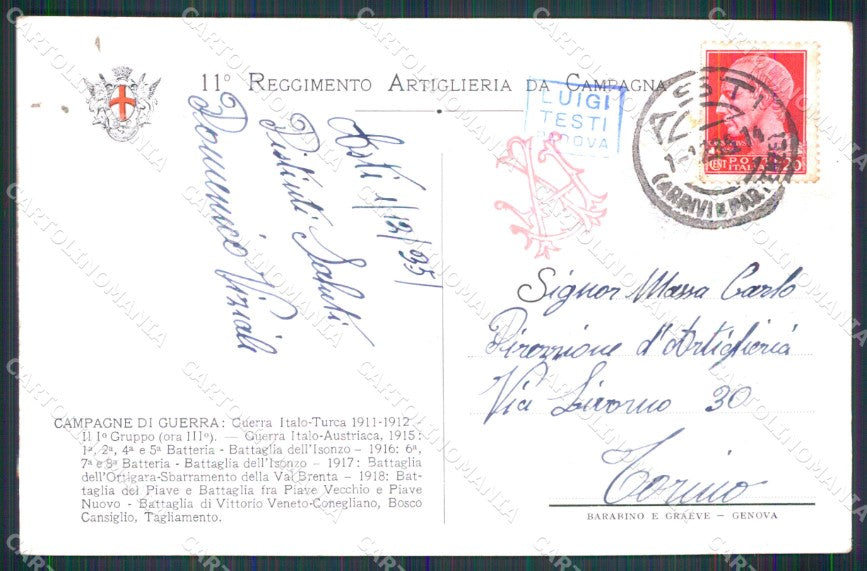 11° REGGIMENTO ARTIGLIERIA DA CAMPAGNA
LUIGI
TESTI
PADOVA
ASTI
(ARRIVI E PARTENZE)
POSTE
ITALIANE
CENT
Asti 1/12/35
Distinti Saluti
Domenico Viziale
Signor Massa Carlo
Direzzione d'Artiglieria
Via Livorno 30
Torino
CAMPAGNE DI GUERRA: Guerra Italo-Turca 1911-1912
Il Iº Gruppo (ora IIIº). — Guerra Italo-Austriaca, 1915:
1ª, 2ª, 4ª e 5ª Batteria - Battaglia dell'Isonzo - 1916: 6ª,
7ª e 8ª Batteria - Battaglia dell'Isonzo - 1917: Battaglia
dell'Ortigara-Sbarramento della Val Brenta - 1918: Bat-
taglia del Piave e Battaglia fra Piave Vecchio e Piave
Nuovo - Battaglia di Vittorio Veneto-Conegliano, Bosco
Cansiglio, Tagliamento.
BARABINO E GRAEVE - GENOVA
CARTOLINOMANIA